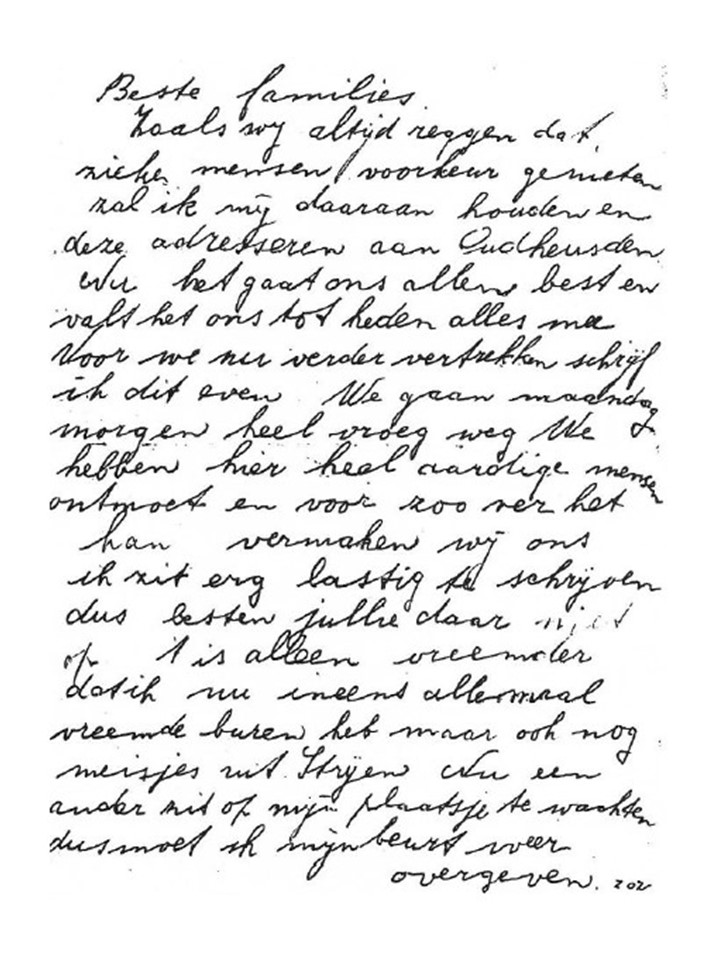 Beste families
Zoals wij altijd zeggen dat
zieke mensen voorkeur genieten
zal ik mij daaraan houden en
deze adresseren aan Oudheusden
Nu het gaat ons allen best en
valt het ons tot heden alles mee
Voor we nu verder vertrekken schrijf
ik dit even We gaan maandag
morgen heel vroeg weg We
hebben hier heel aardige mensen
ontmoet en voor zoo ver het
kan vermaken wij ons
ik zit erg lastig te schrijven
dus letten jullie daar niet
op 't is alleen vreemder
dat ik nu ineens allemaal
vreemde buren heb maar ook nog
meisjes uit Strijen Nu een
ander zit op mijn plaatsje te wachten
dus moet ik mijn beurt weer
overgeven. zoz